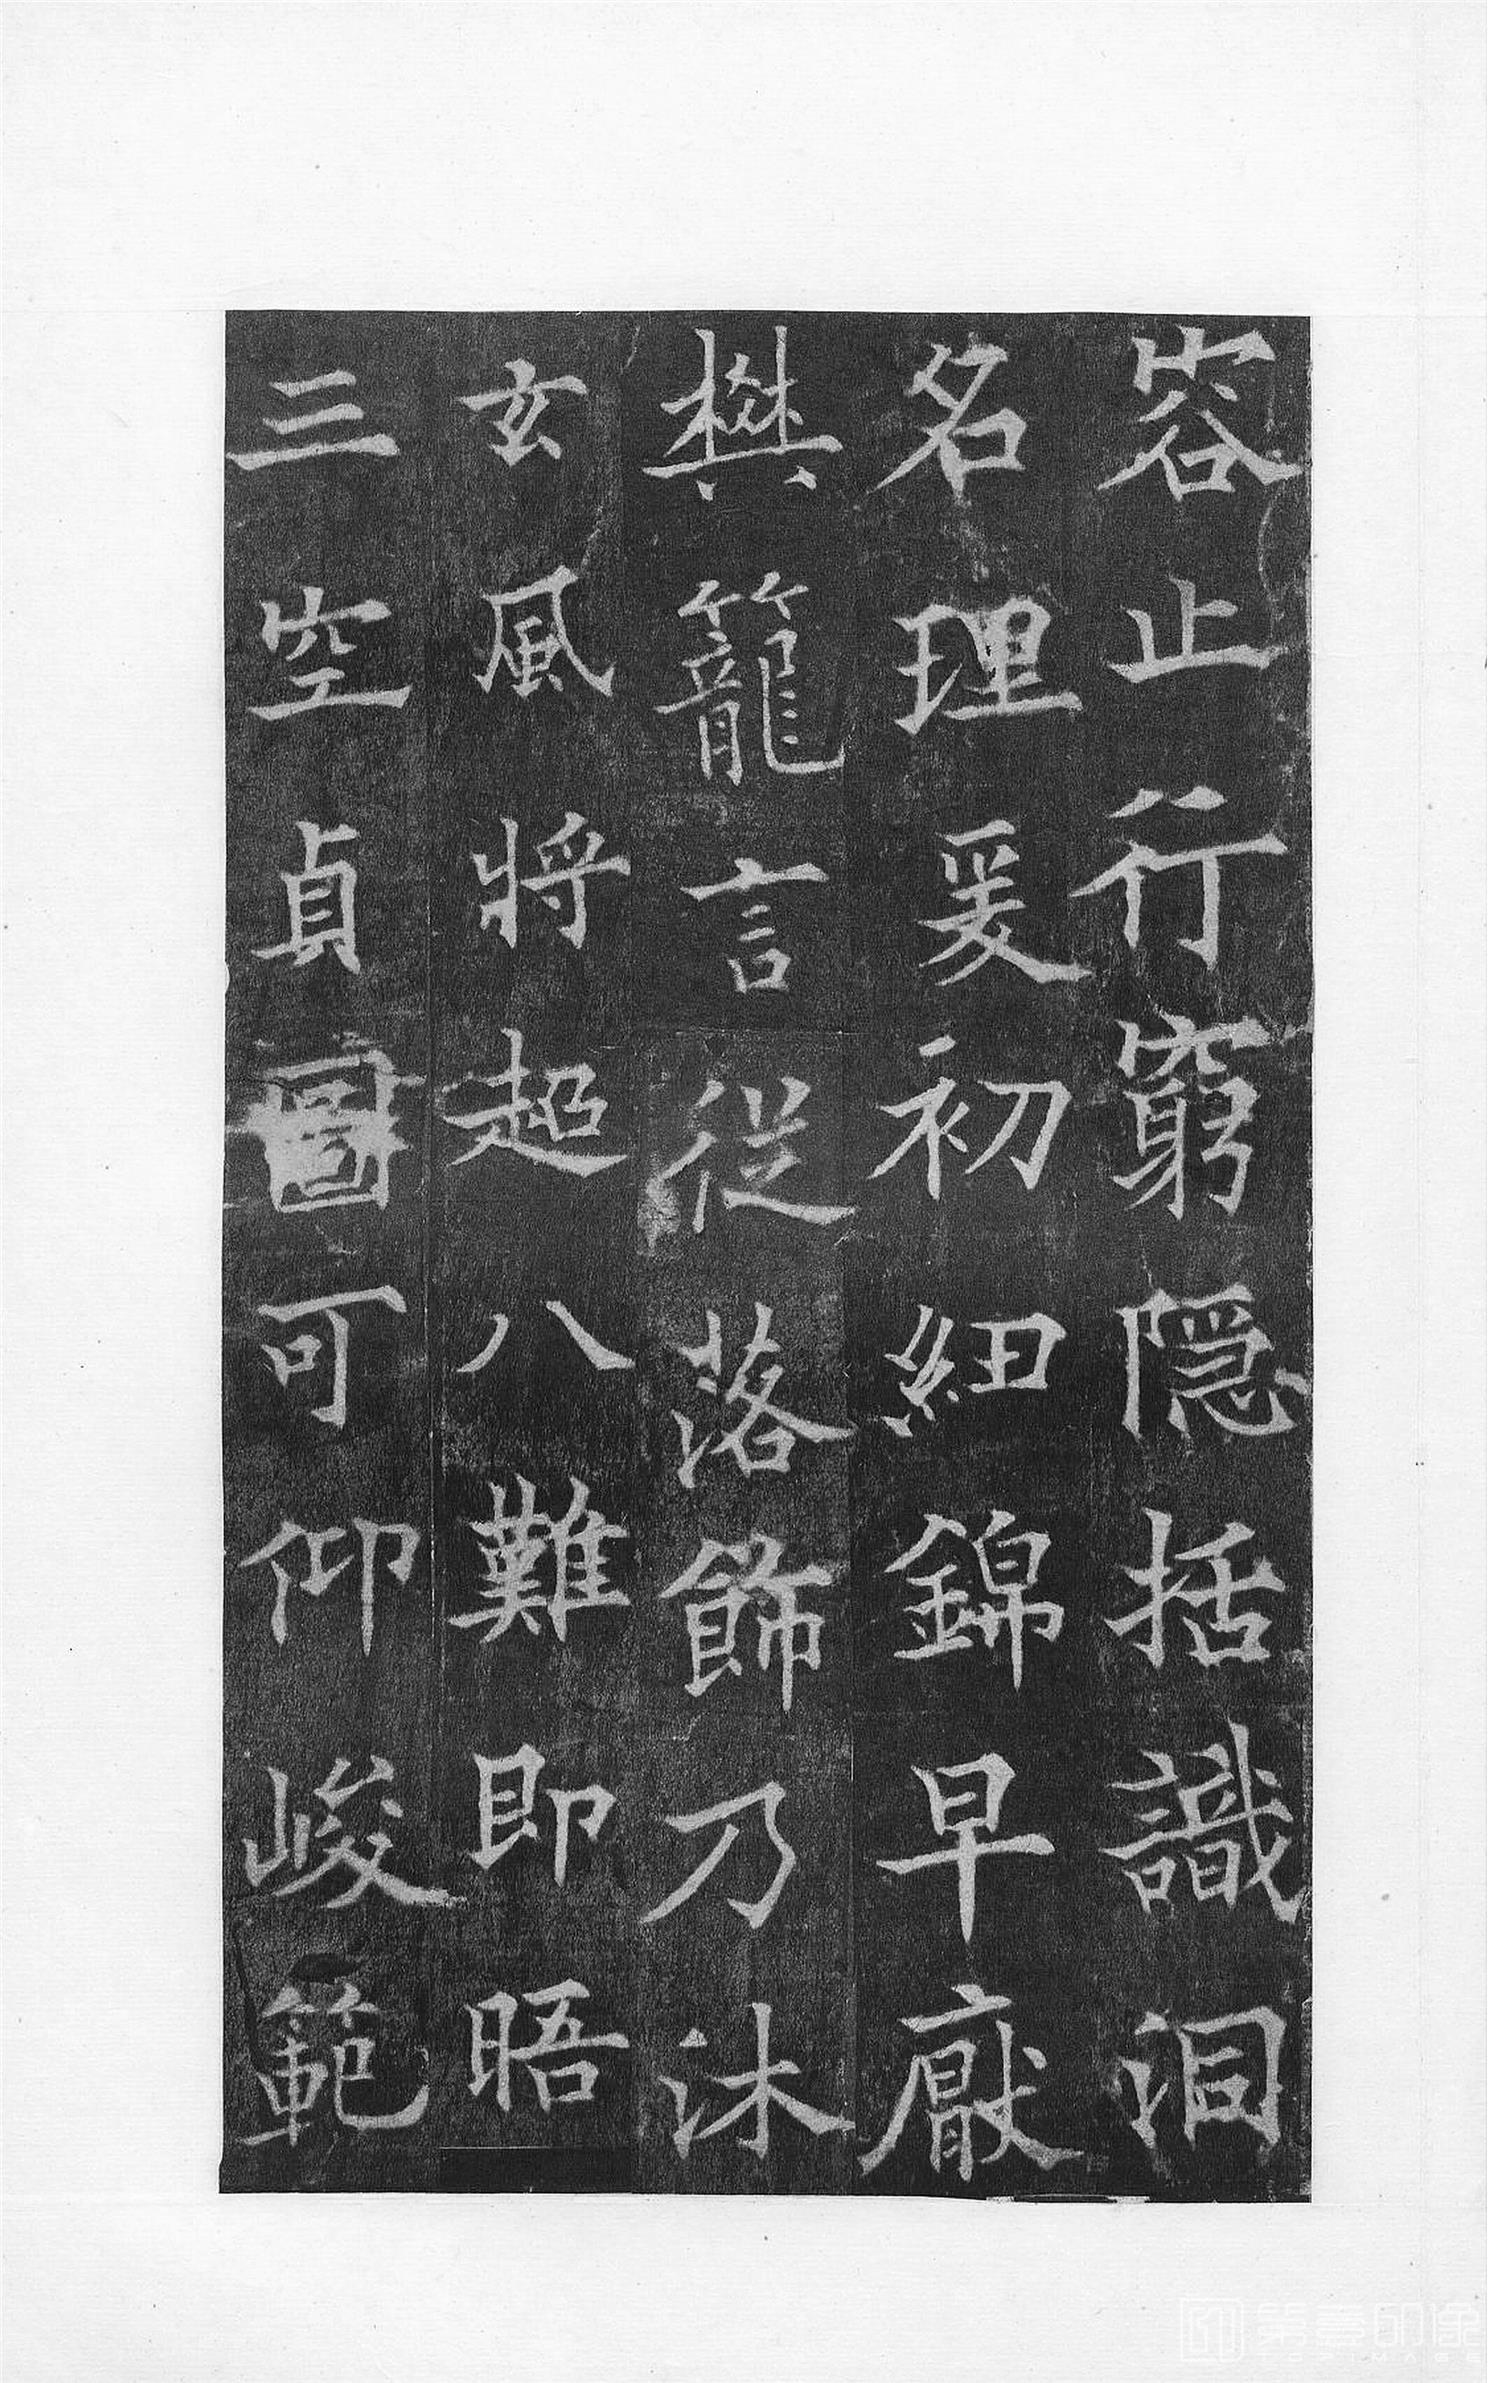 容止行窮隱括識洞
名理爰初紐錦早厰
樊籠言從落飾乃沐
玄風將超八難即晤
三空貞圖可仰峻範
第壹印像
TOPIMAGE